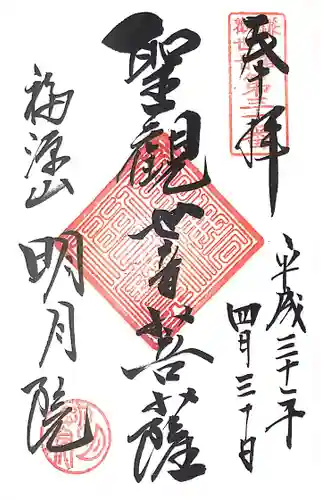 奉拝
平成三十一年
四月三十日
聖観世音菩薩
福源山
明月院